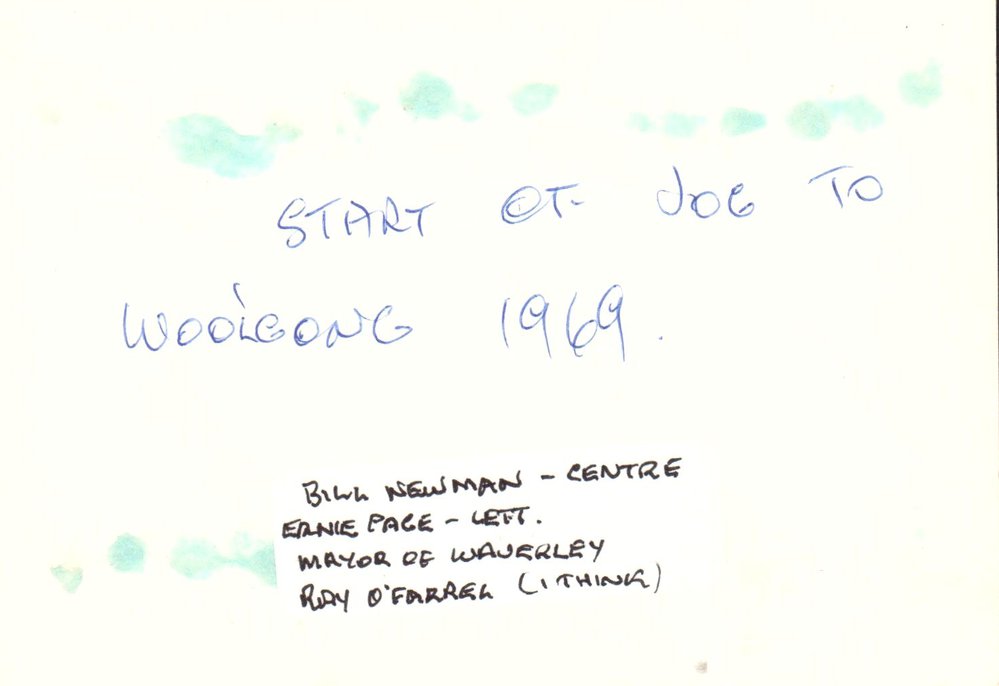 START OF JOG TO
WOOLGONG 1969.
BILL NEWMAN - CENTRE
ERNIE PAGE - LEFT.
MAYOR OF WAVERLEY
RAY O'FARREL (I THINK)